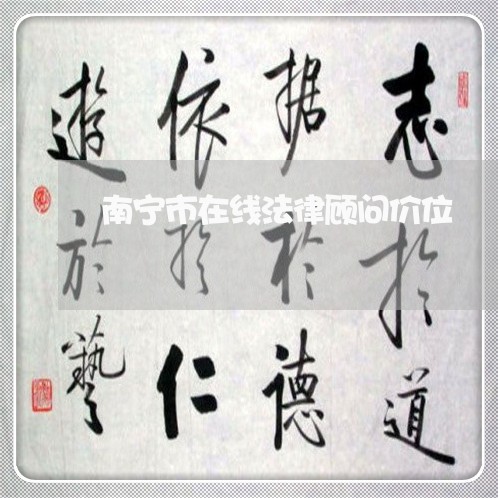 志於道
据於德
依於仁
遊於藝
南宁市在线法律顾问价位